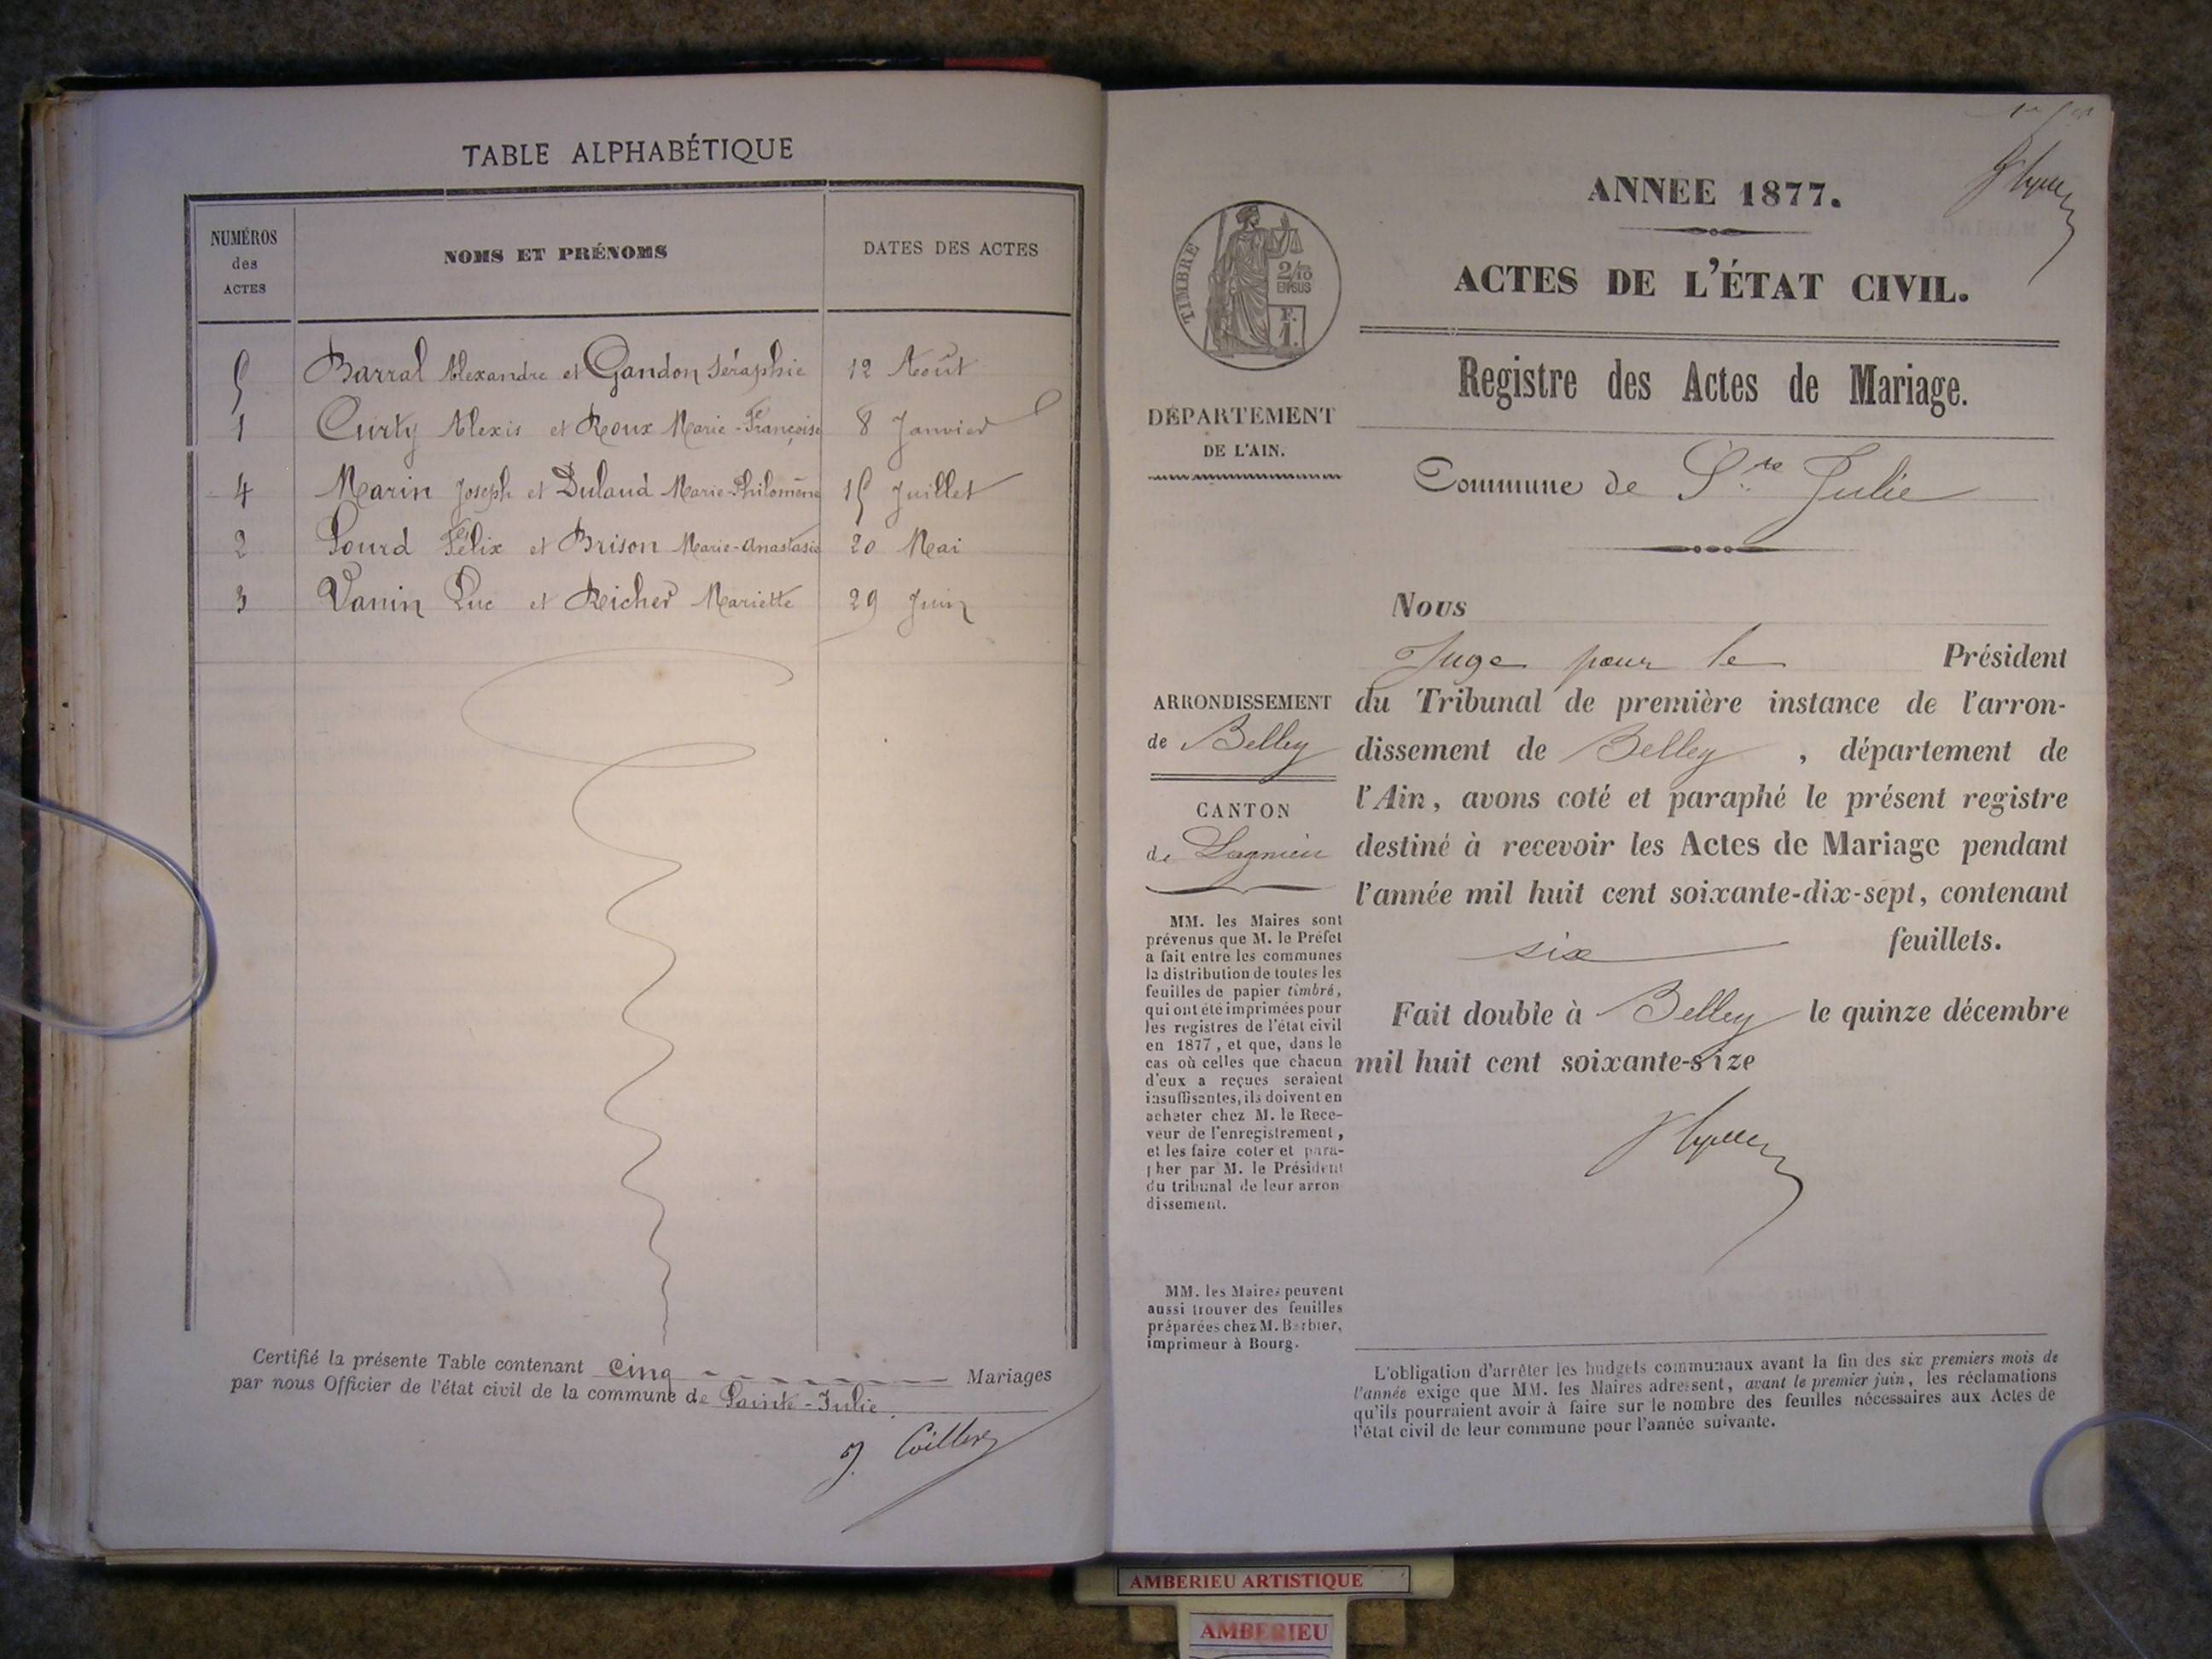 TABLE ALPHABÉTIQUE
NUMÉROS
des
ACTES
NOMS ET PRÉNOMS
DATES DES ACTES
5 Barral Alexandre et Gandon Séraphie 12 Août
1 Curty Alexis et Roux Marie-Françoise 8 Janvier
4 Marin Joseph et Dulaud Marie-Philomène 15 Juillet
2 Lourd Félix et Brison Marie-Anastasie 20 Mai
3 Vanin Luc et Richer Mariette 29 Juin
Certifié la présente Table contenant Cinq Mariages
par nous Officier de l'état civil de la commune de Sainte-Julie.
ANNEE 1877.
ACTES DE L'ÉTAT CIVIL.
Registre des Actes de Mariage.
Commune de Ste Julie
TIMBRE
2/10
EN SUS
F.
1.
DÉPARTEMENT
DE L'AIN.
ARRONDISSEMENT
de Belley
CANTON
de Lagnieu
MM. les Maires sont
prévenus que M. le Préfet
a fait entre les communes
la distribution de toutes les
feuilles de papier timbré,
qui ont été imprimées pour
les registres de l'état civil
en 1877, et que, dans le
cas où celles que chacun
d'eux a reçues seraient
insuffisantes, ils doivent en
acheter chez M. le Rece-
veur de l'enregistrement,
et les faire coter et para-
pher par M. le Président
du tribunal de leur arron
dissement.
MM. les Maires peuvent
aussi trouver des feuilles
préparées chez M. Barbier,
imprimeur à Bourg.
Nous
Juge pour le Président
du Tribunal de première instance de l'arron-
dissement de Belley, département de
l'Ain, avons coté et paraphé le présent registre
destiné à recevoir les Actes de Mariage pendant
l'année mil huit cent soixante-dix-sept, contenant
six feuillets.
Fait double à Belley le quinze décembre
mil huit cent soixante-size
L'obligation d'arrêter les budgets communaux avant la fin des six premiers mois de
l'année exige que MM. les Maires adressent, avant le premier juin, les réclamations
qu'ils pourraient avoir à faire sur le nombre des feuilles nécessaires aux Actes de
l'état civil de leur commune pour l'année suivante.
AMBERIEU ARTISTIQUE
AMBERIEU